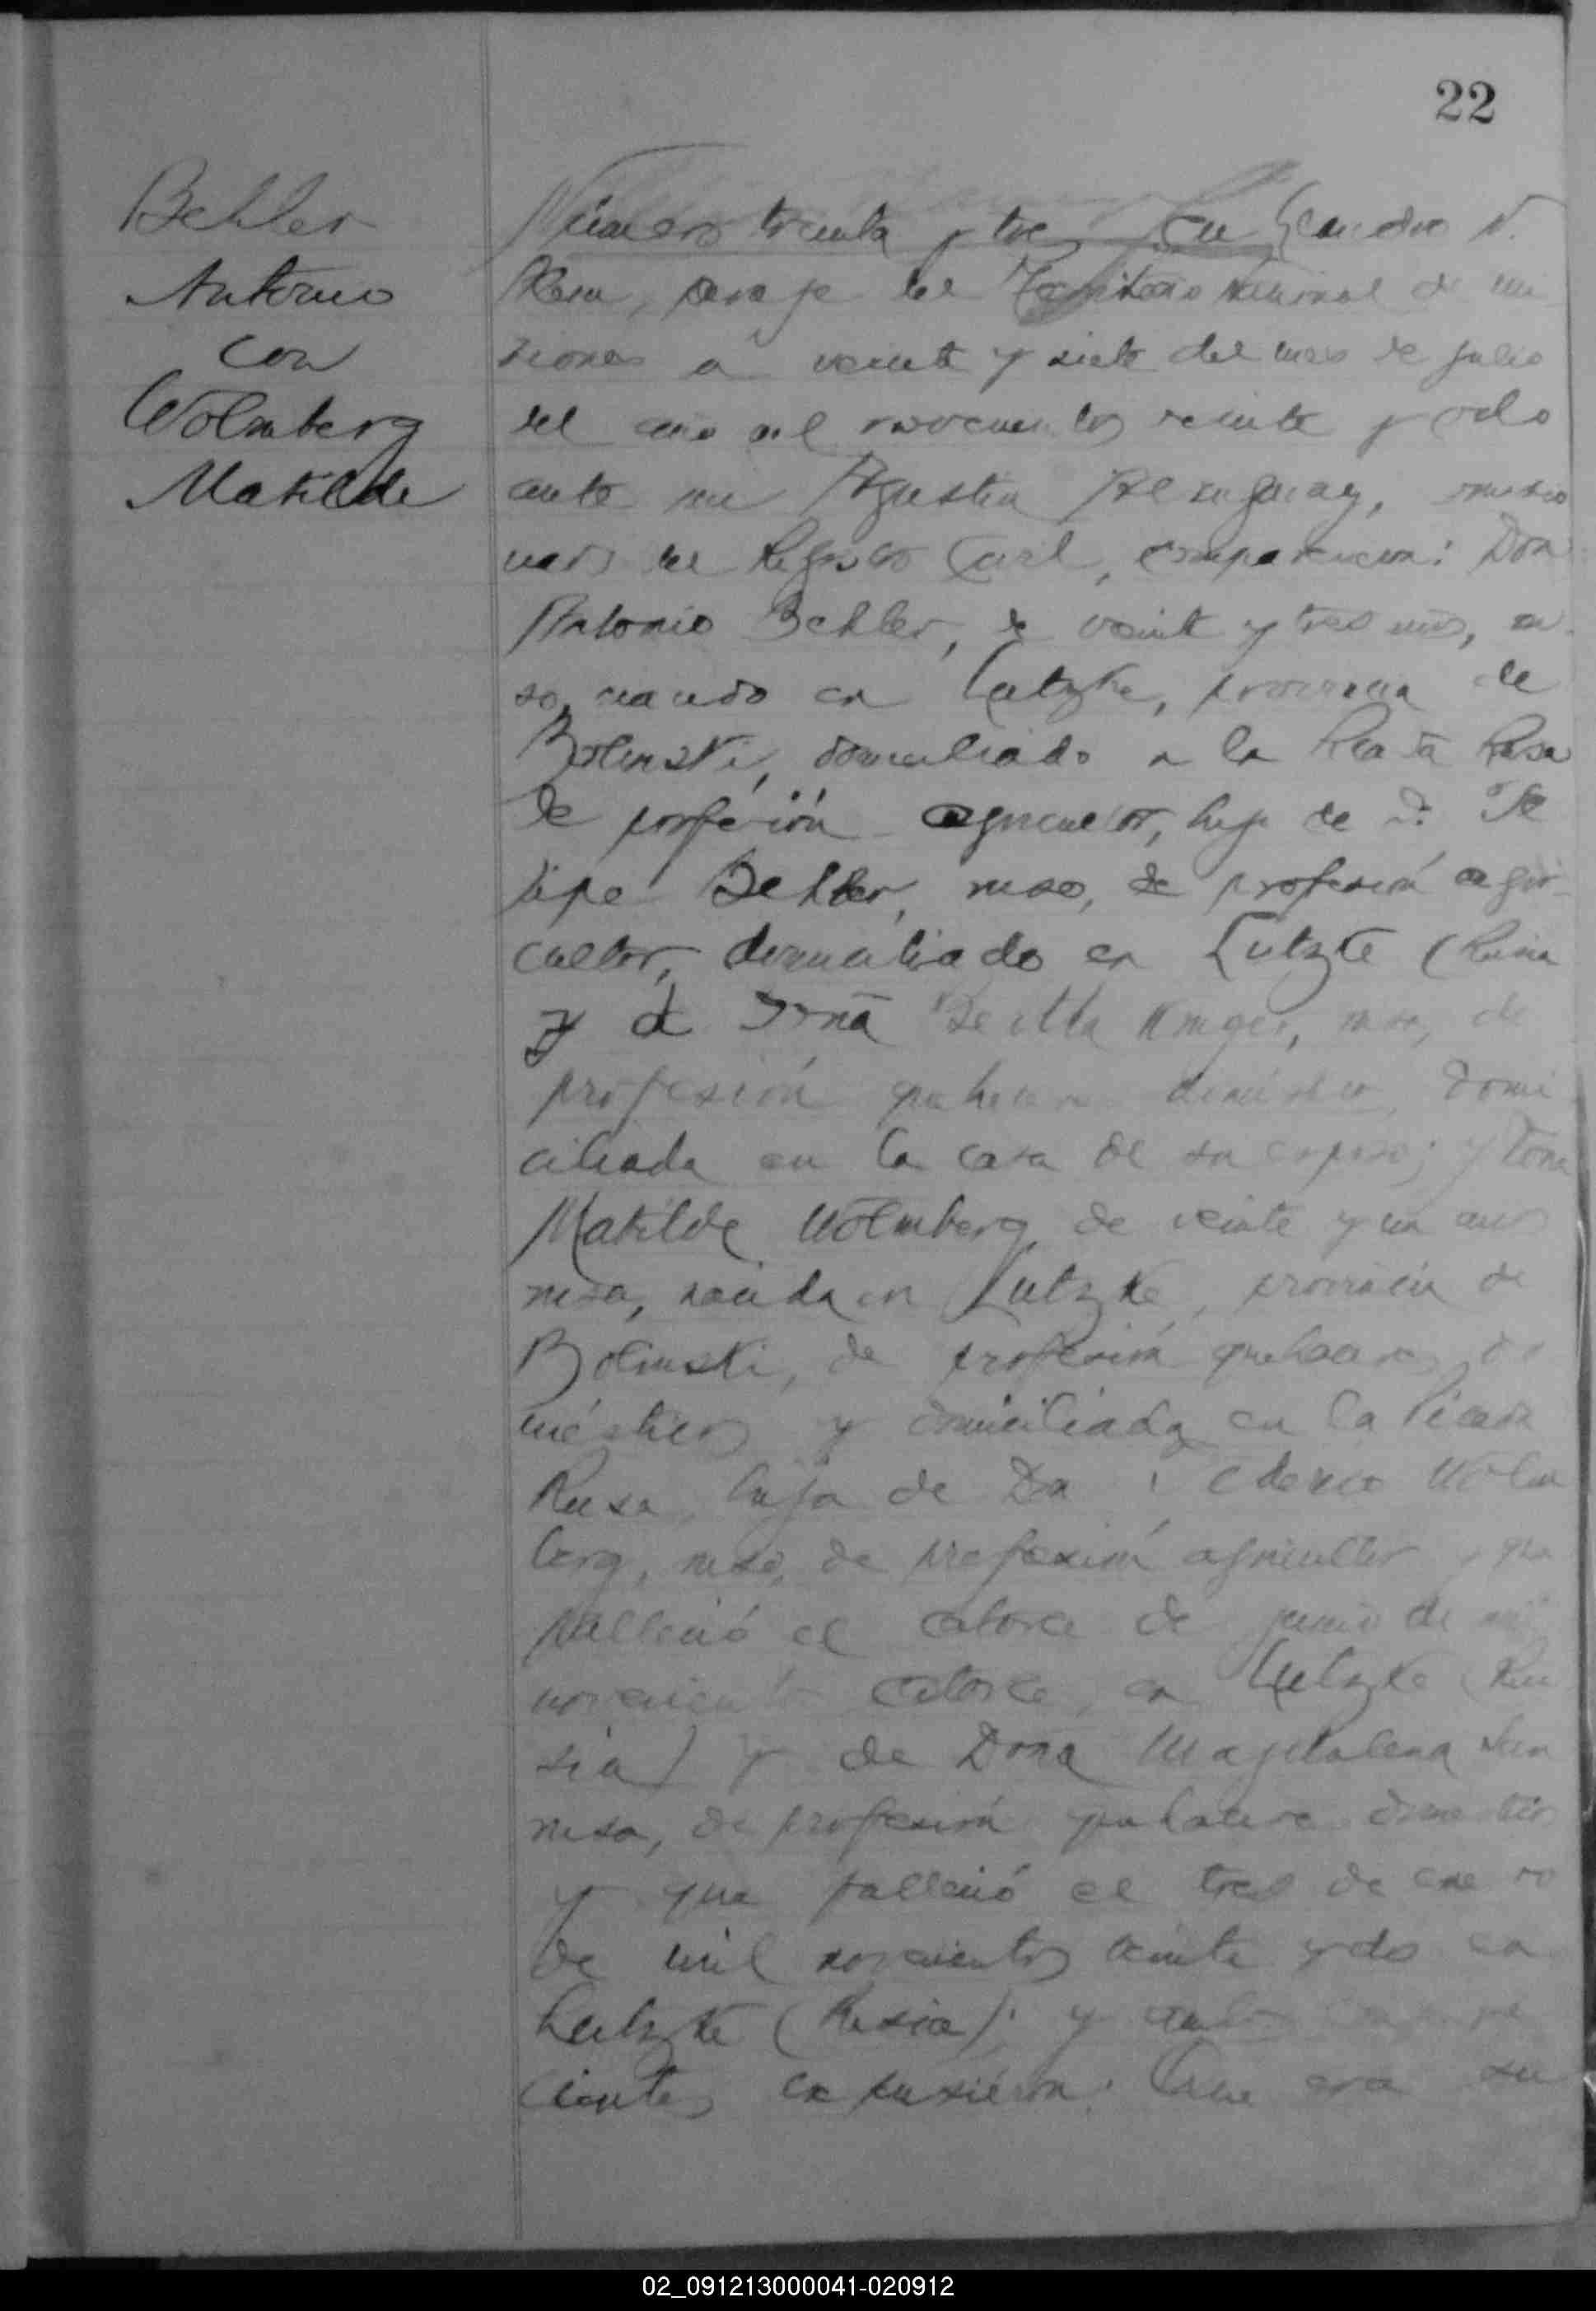 22
Behler
Antonio
con
Wolmberg
Matilde
Número treinta y tres En Leandro N.
Alem, paraje del Territorio Nacional de Mi
siones a veinte y siete del mes de julio
del año mil novecientos veinte y ocho
ante mi Agustin
del Registro Civil, comparecieron: Don
Antonio Behler, de veinte y tres años, ru
so, nacido en Lutzke, provincia de
Bolinski, domiciliado en la Picada Rusa
de profesión agricultor, hijo de D. Fe
lipe Behler, ruso, de profesión agri
cultor, domiciliado en Lutzke (Rusia
y de Doña Bertha Kruger, rusa, de
profesión quehaceres domésticos, domi
ciliada en la casa de su esposo; y Doña
Matilde Wolmberg, de veinte y un años
rusa, nacida en Lutzke, provincia de
Bolinski, de profesión quehaceres do
mésticos y domiciliada en la Picada
Rusa, hija de Don Federico Wolm
berg, ruso, de profesión agricultor y que
falleció el catorce de junio de mil
novecientos catorce, en Lutzke (Ru
sia) y de Doña Magdalena
rusa, de profesión quehaceres domésticos
y que falleció el tres de enero
de mil novecientos veinte y dos en
Lutzke (Rusia); y ambos compare
cientes expusieron: Que era su
02_091213000041-020912